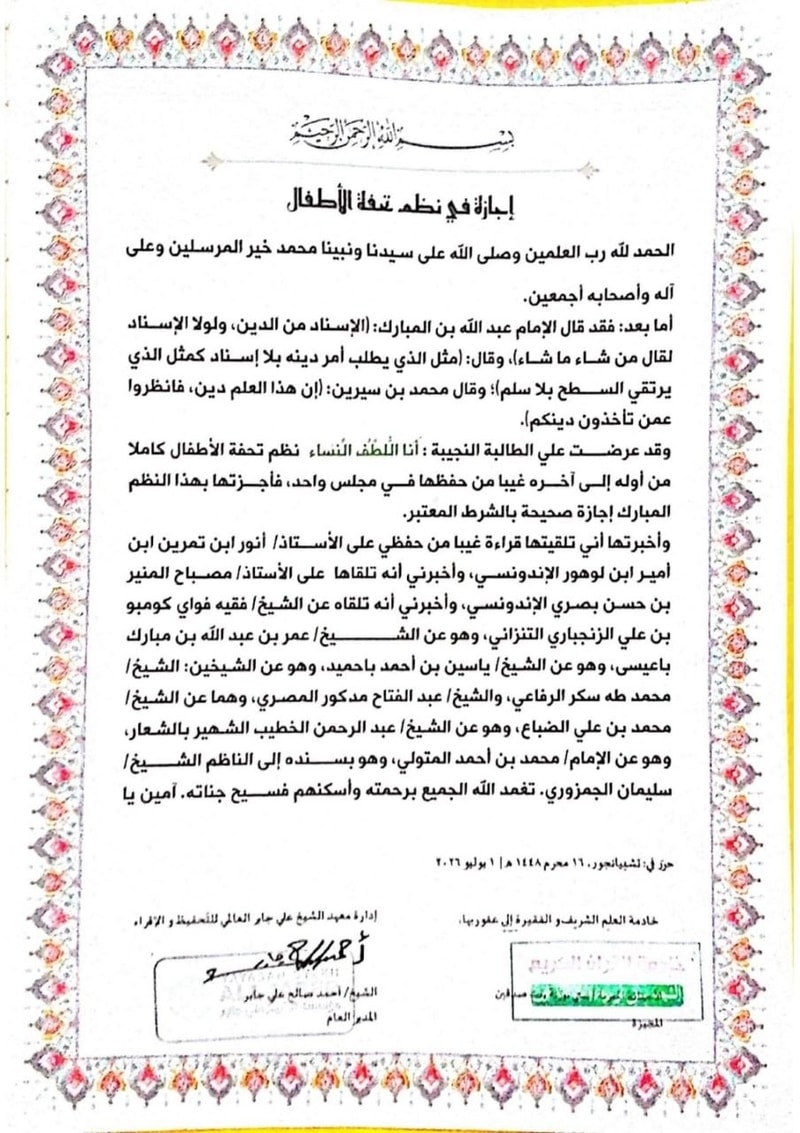 بسم الله الرحمن الرحيم
إجازة في نظم تحفة الأطفال
الحمد لله رب العلمين وصلى الله على سيدنا ونبينا محمد خير المرسلين وعلى
آله وأصحابه أجمعين.
أما بعد: فقد قال الإمام عبد الله بن المبارك: (الإسناد من الدين، ولولا الإسناد
لقال من شاء ما شاء)، وقال: (مثل الذي يطلب أمر دينه بلا إسناد كمثل الذي
يرتقي السطح بلا سلم)؛ وقال محمد بن سيرين: (إن هذا العلم دين، فانظروا
عمن تأخذون دينكم).
وقد عرضت علي الطالبة النجيبة : أنا اللطف النساء نظم تحفة الأطفال كاملا
من أوله إلى آخره غيبا من حفظها في مجلس واحد، فأجزتها بهذا النظم
المبارك إجازة صحيحة بالشرط المعتبر.
وأخبرتها أني تلقيتها قراءة غيبا من حفظي على الأستاذ/ أنور ابن تمرين ابن
أمير ابن لوهور الإندونسي، وأخبرني أنه تلقاها على الأستاذ/ مصباح المنير
بن حسن بصري الإندونسي، وأخبرني أنه تلقاه عن الشيخ/ فقيه فواي كومبو
بن علي الزنجباري التنزاني، وهو عن الشيخ/ عمر بن عبد الله بن مبارك
باعيسى، وهو عن الشيخ/ ياسين بن أحمد باحميد، وهو عن الشيخين: الشيخ/
محمد طه سكر الرفاعي، والشيخ/ عبد الفتاح مدكور المصري، وهما عن الشيخ/
محمد بن علي الضباع، وهو عن الشيخ/ عبد الرحمن الخطيب الشهير بالشعار،
وهو عن الإمام/ محمد بن أحمد المتولي، وهو بسنده إلى الناظم الشيخ/
سليمان الجمزوري. تغمد الله الجميع برحمته وأسكنهم فسيح جناته. آمين يا
حرر في: تشيبانجور. ١٦ محرم ١٤٤٨ هـ | ١ يوليو ٢٠٢٦
خادمة العلم الشريف و الفقيرة إلى عفو ربها،
خادمة القرآن الكريم
المجيزة
إدارة معهد الشيخ علي جابر العالمي للتحفيظ و الإقراء
الشيخ/ أحمد صالح علي جابر
المدير العام